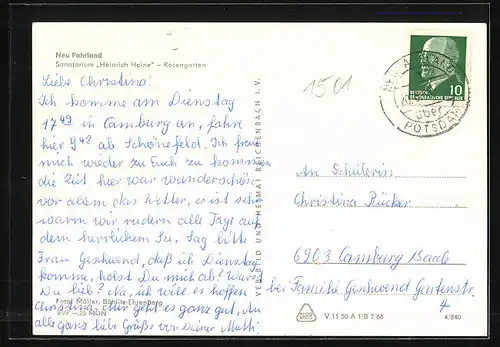 Neu Fahrland
Sanatorium „Heinrich Heine" – Rosengarten
1501
Liebe Christina!
Ich komme am Dienstag
17 49 in Camburg an, fahre
hier 9 42 ab Schönefeld. Ich freu
mich wieder zu Euch zu kommen
die Zeit hier war wunderschön
vor allem das Wetter, es ist sehr
warm wir rudern alle Tage auf
dem herrlichem See, Sag bitte
Frau Geschwend, daß ich Dienstag
komme, holst Du mich ab? Warst
Du lieb? Na, ich will es hoffen
Christina, mir geht es ganz gut, Nun
alle ganz liebe Grüße von Deiner Mutti.
Foto: Müller, Böhlitz-Ehrenberg
EVP –,25 MDN
VERLAG BILD UND HEIMAT REICHENBACH I. V.
10
DEUTSCHE
DEMOKRATISCHE REPUBLIK
über
POTSDAM
An Schülerin
Christina Rücker
6903 Camburg Saale
bei Familie Geschwend Gartenstr.
4
V 11 50 A 1/B 7/68
4/840